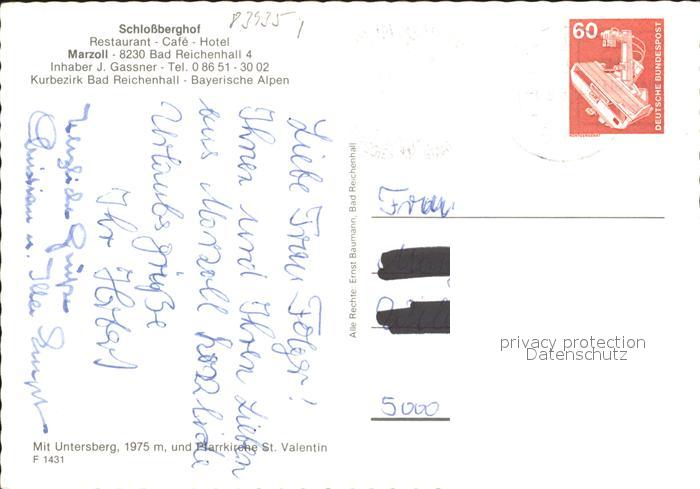 83935y
Schloßberghof
Restaurant - Café - Hotel
Marzoll - 8230 Bad Reichenhall 4
Inhaber J. Gassner - Tel. 0 86 51 - 30 02
Kurbezirk Bad Reichenhall - Bayerische Alpen
60
DEUTSCHE BUNDESPOST
RÖNTGENGERÄT
Liebe Frau Folger!
Ihnen und Ihren Lieben
aus Marzoll herzliche
Urlaubsgrüße
Ihr
Herzliche Grüße
Christian u.
Alle Rechte: Ernst Baumann, Bad Reichenhall
Frau
5000
privacy protection
Datenschutz
Mit Untersberg, 1975 m, und Pfarrkirche St. Valentin
F 1431